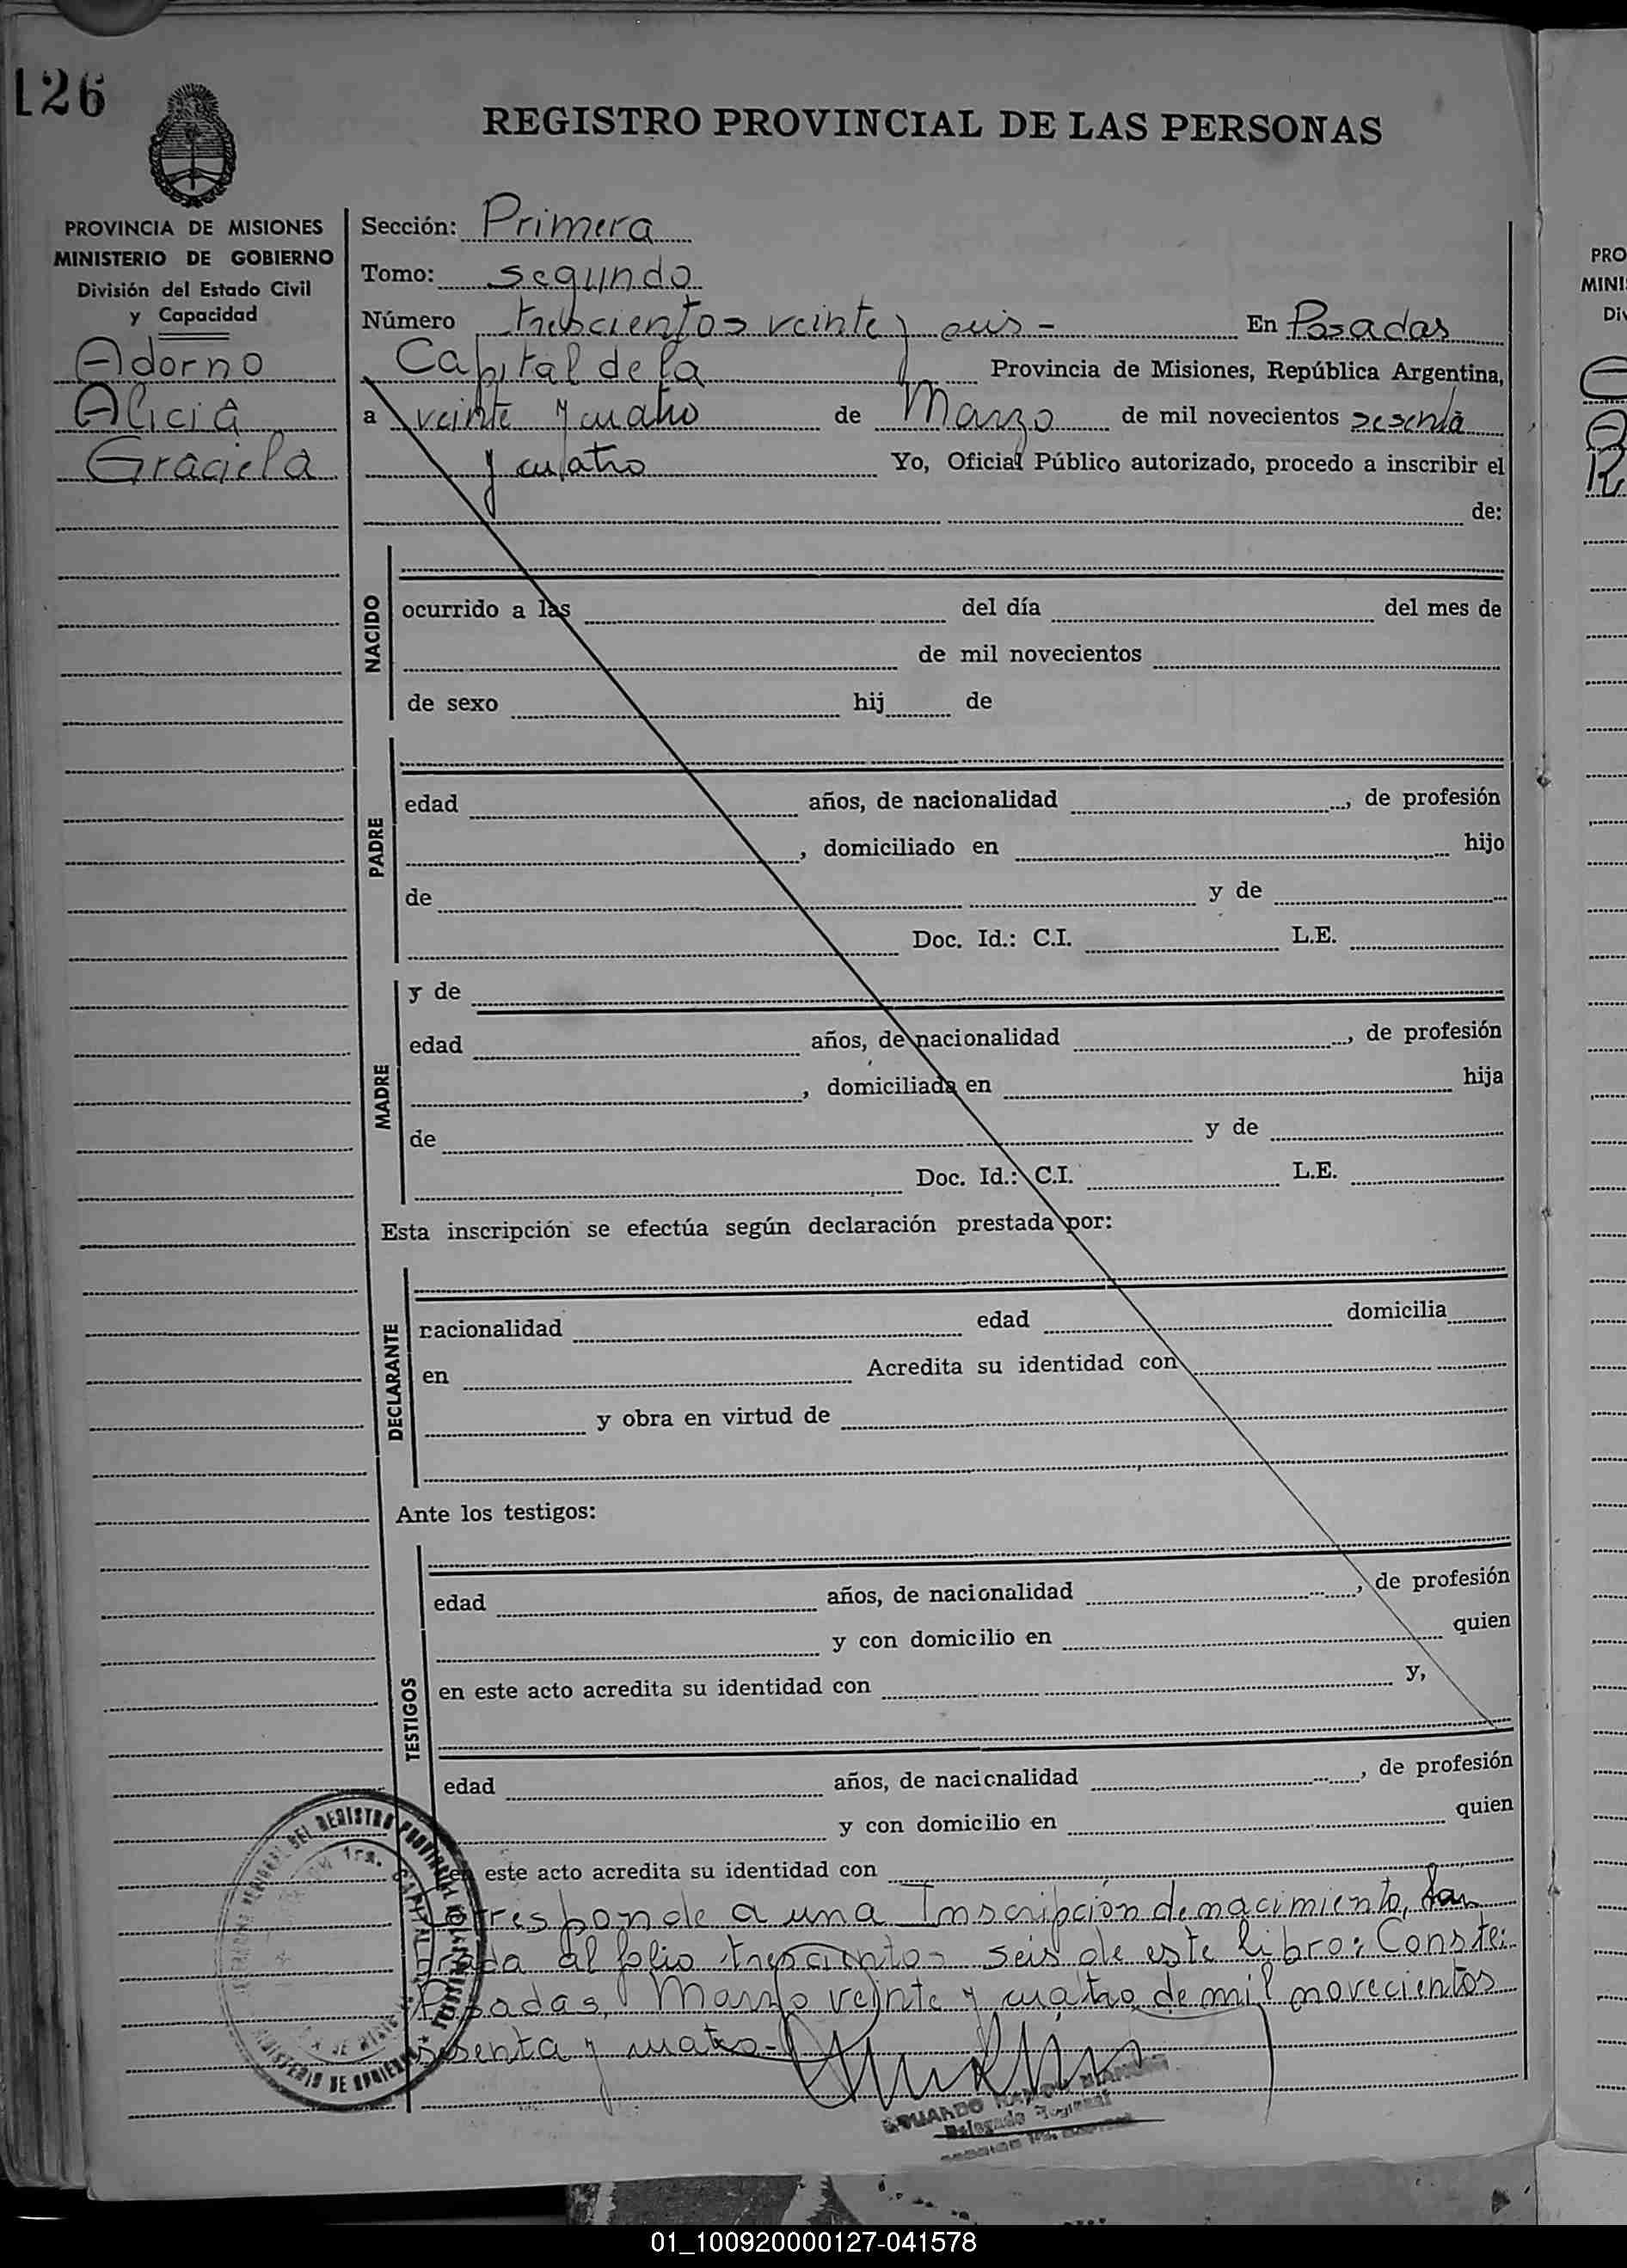 126
REGISTRO PROVINCIAL DE LAS PERSONAS
PROVINCIA DE MISIONES
MINISTERIO DE GOBIERNO
División del Estado Civil
y Capacidad
Adorno
Alicia
Graciela
Sección: Primera
Tomo: segundo
Número trescientos veinte y seis - En Posadas
Capital de la Provincia de Misiones, República Argentina,
a veinte y cuatro de Marzo de mil novecientos sesenta
y cuatro Yo, Oficial Público autorizado, procedo a inscribir el
de:
NACIDO
ocurrido a las del día del mes de
de mil novecientos
de sexo hij de
PADRE
edad años, de nacionalidad , de profesión
, domiciliado en hijo
de y de
Doc. Id.: C.I. L.E.
MADRE
y de
edad años, de nacionalidad , de profesión
, domiciliada en hija
de y de
Doc. Id.: C.I. L.E.
Esta inscripción se efectúa según declaración prestada por:
DECLARANTE
nacionalidad edad domicilia
en Acredita su identidad con
y obra en virtud de
Ante los testigos:
TESTIGOS
edad años, de nacionalidad , de profesión
y con domicilio en quien
en este acto acredita su identidad con y,
edad años, de nacionalidad , de profesión
y con domicilio en quien
en este acto acredita su identidad con
responde a una Inscripción de nacimiento,
al folio trescientos seis de este libro: Conste:
Posadas, Marzo veinte y cuatro de mil novecientos
sesenta y cuatro -
Delegado Regional
PRO
MINI
Div
01_100920000127-041578